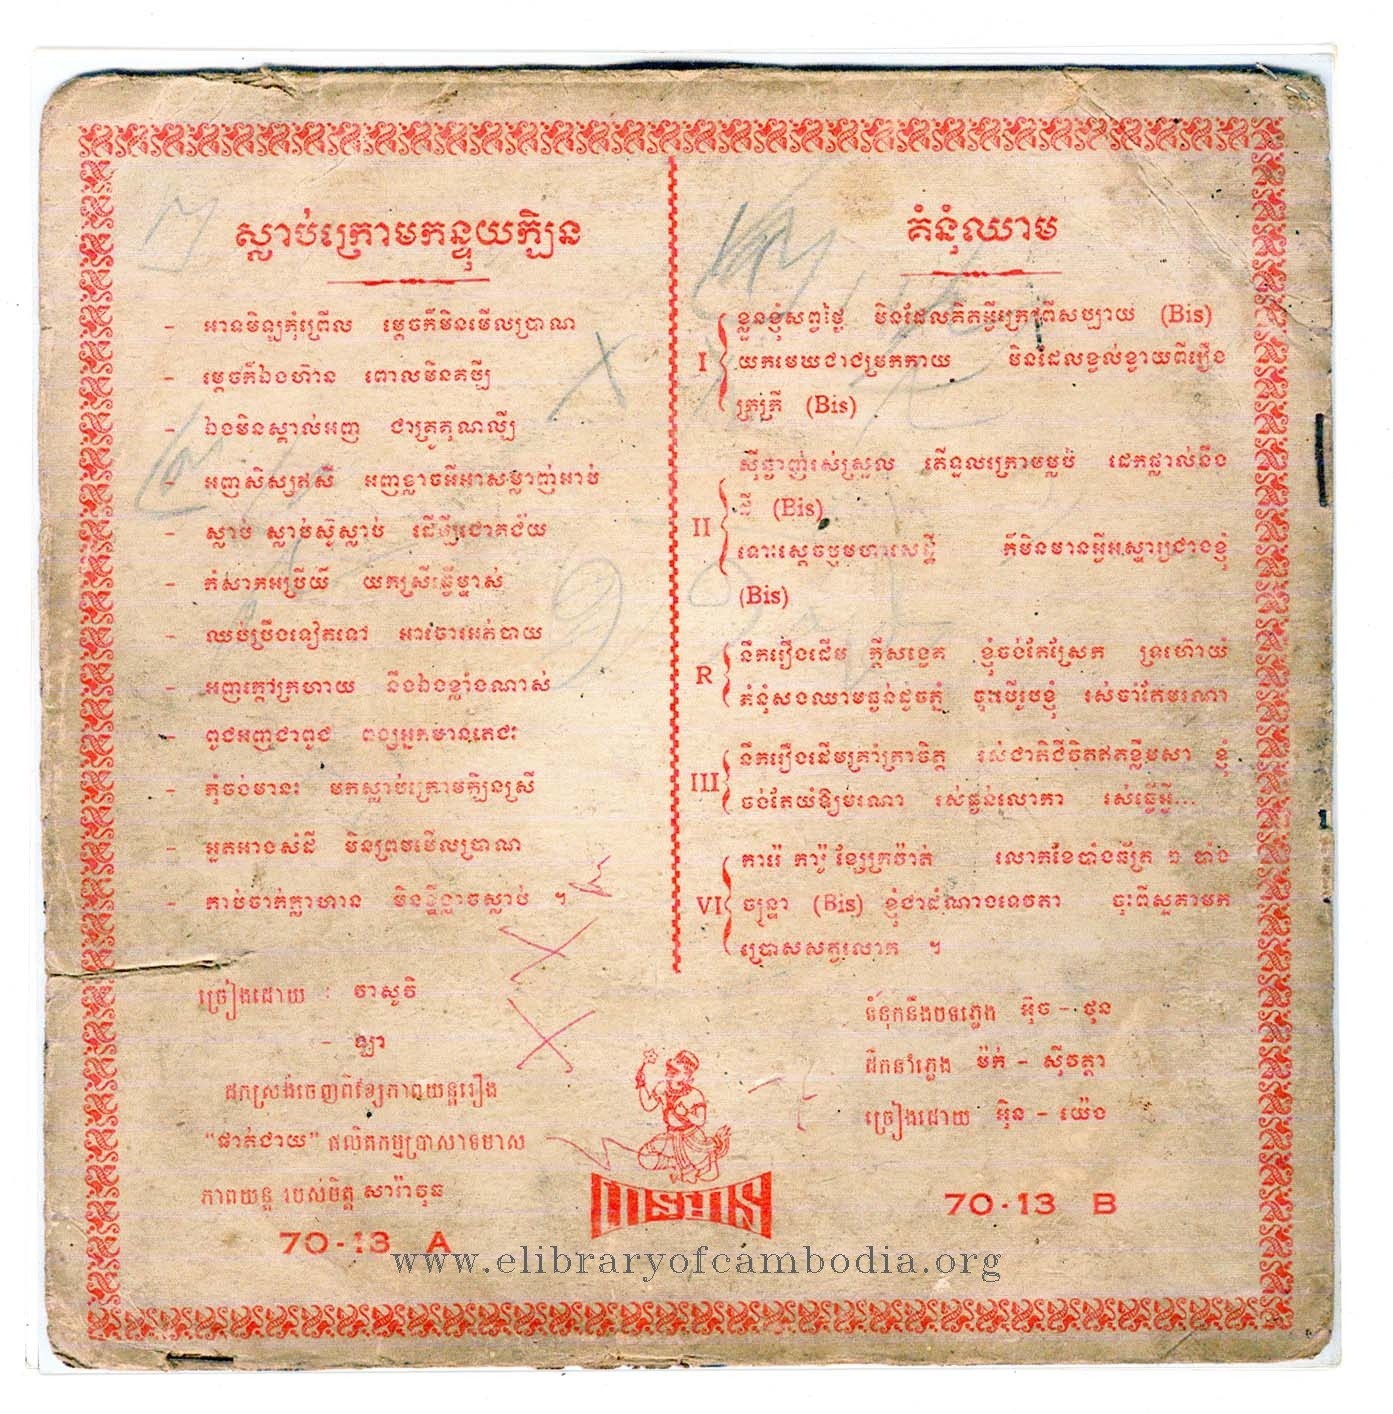 ស្លាប់ក្រោមកន្ទុយក្បិន
- អាទមិឡកុំព្រើល ម្ដេចក៏មិនមើលប្រាណ
- ម្ដេចក៏ឯងហ៊ាន ពោលមិនគប្បី
- ឯងមិនស្គាល់អញ ជាគ្រូគុណលឺ្ប
- អញសិស្សឥសី អញខ្លាចអីអាសម្លាញ់អាប់
- ស្លាប់ ស្លាប់ស៊ូស្លាប់ ដើម្បីជោគជ័យ
- កំសាកអប្រីយ៍ យកស្រីធ្វើម្ចាស់
- ឈប់ប្រឹងទៀតទៅ អាចោរអត់បាយ
- អញក្ដៅក្រហាយ នឹងឯងខ្លាំងណាស់
- ពូជអញជាពូជ ពង្សអ្នកមានតេជះ
- កុំចង់មានះ មកស្លាប់ក្រោមក្បិនស្រី
- អួតអាងសំដី មិនព្រមមើលប្រាណ
- កាប់ចាក់ក្លាហាន មិនដឹខ្លាចស្លាប់ ។
ច្រៀងដោយ : វាសូវិ
- ឡា
ដកស្រង់ចេញពីខ្សែភាពយន្ដរឿង
"ផាត់ជាយ" ផលិតកម្មប្រាសាទមាស
ភាពយន្ដ របស់ចិត្ត សារ៉ាវុធ
70-13 A
គំនុំឈាម
I
ខ្លួនខ្ញុំសព្វថ្ងៃ មិនដែលគិតអ្វីក្រៅពីសប្បាយ (Bis)
យកមេឃជាជម្រកកាយ មិនដែលខ្វល់ខ្វាយពីរឿង
ក្រក្រី (Bis)
II
ស៊ីឆ្ងាញ់រស់ស្រួល តើទួលក្រោមម្លប់ ដេកផ្ទាល់នឹង
ដី (Bis)
ទោះស្ដេចឬមហាសេដ្ឋី ក៏មិនមានអ្វីអស្ចារ្យជាងខ្ញុំ
(Bis)
R
នឹករឿងដើម ក្ដីសង្វេគ ខ្ញុំចង់តែស្រែក ទ្រហោយំ
គំនុំសងឈាមធ្ងន់ដូចភ្នំ ចុងបើរូបខ្ញុំ រស់ចាំតែមរណា
III
នឹករឿងដើមគ្រាំគ្រាចិត្ត រស់ជាតិជីវិតឥតខ្លឹមសា ខ្ញុំ
ចង់តែយំឱ្យមរណា រស់ធ្ងន់លោកា រស់ធ្វើអ្វី...
VI
ការ៉េ ការ៉ូ ខ្សែក្រវ៉ាត់ លោកខែបាំងឆ័ត្រ ឯ បាំង
ចន្ទ្រា (Bis) ខ្ញុំជាដំណាងទេវតា ចុះពីសួគាមក
ប្រោសសត្វលោក ។
ទំនុកនឹងបទភ្លេង អ៊ុច - ថុន
ដឹកនាំភ្លេង ម៉ក់ - ស៊ីវត្ថា
ច្រៀងដោយ អ៊ិន - យ៉េង
70-13 B
www.elibraryofcambodia.org